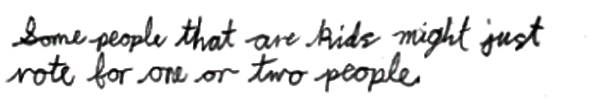 Some people that are kids might just
vote for one or two people.